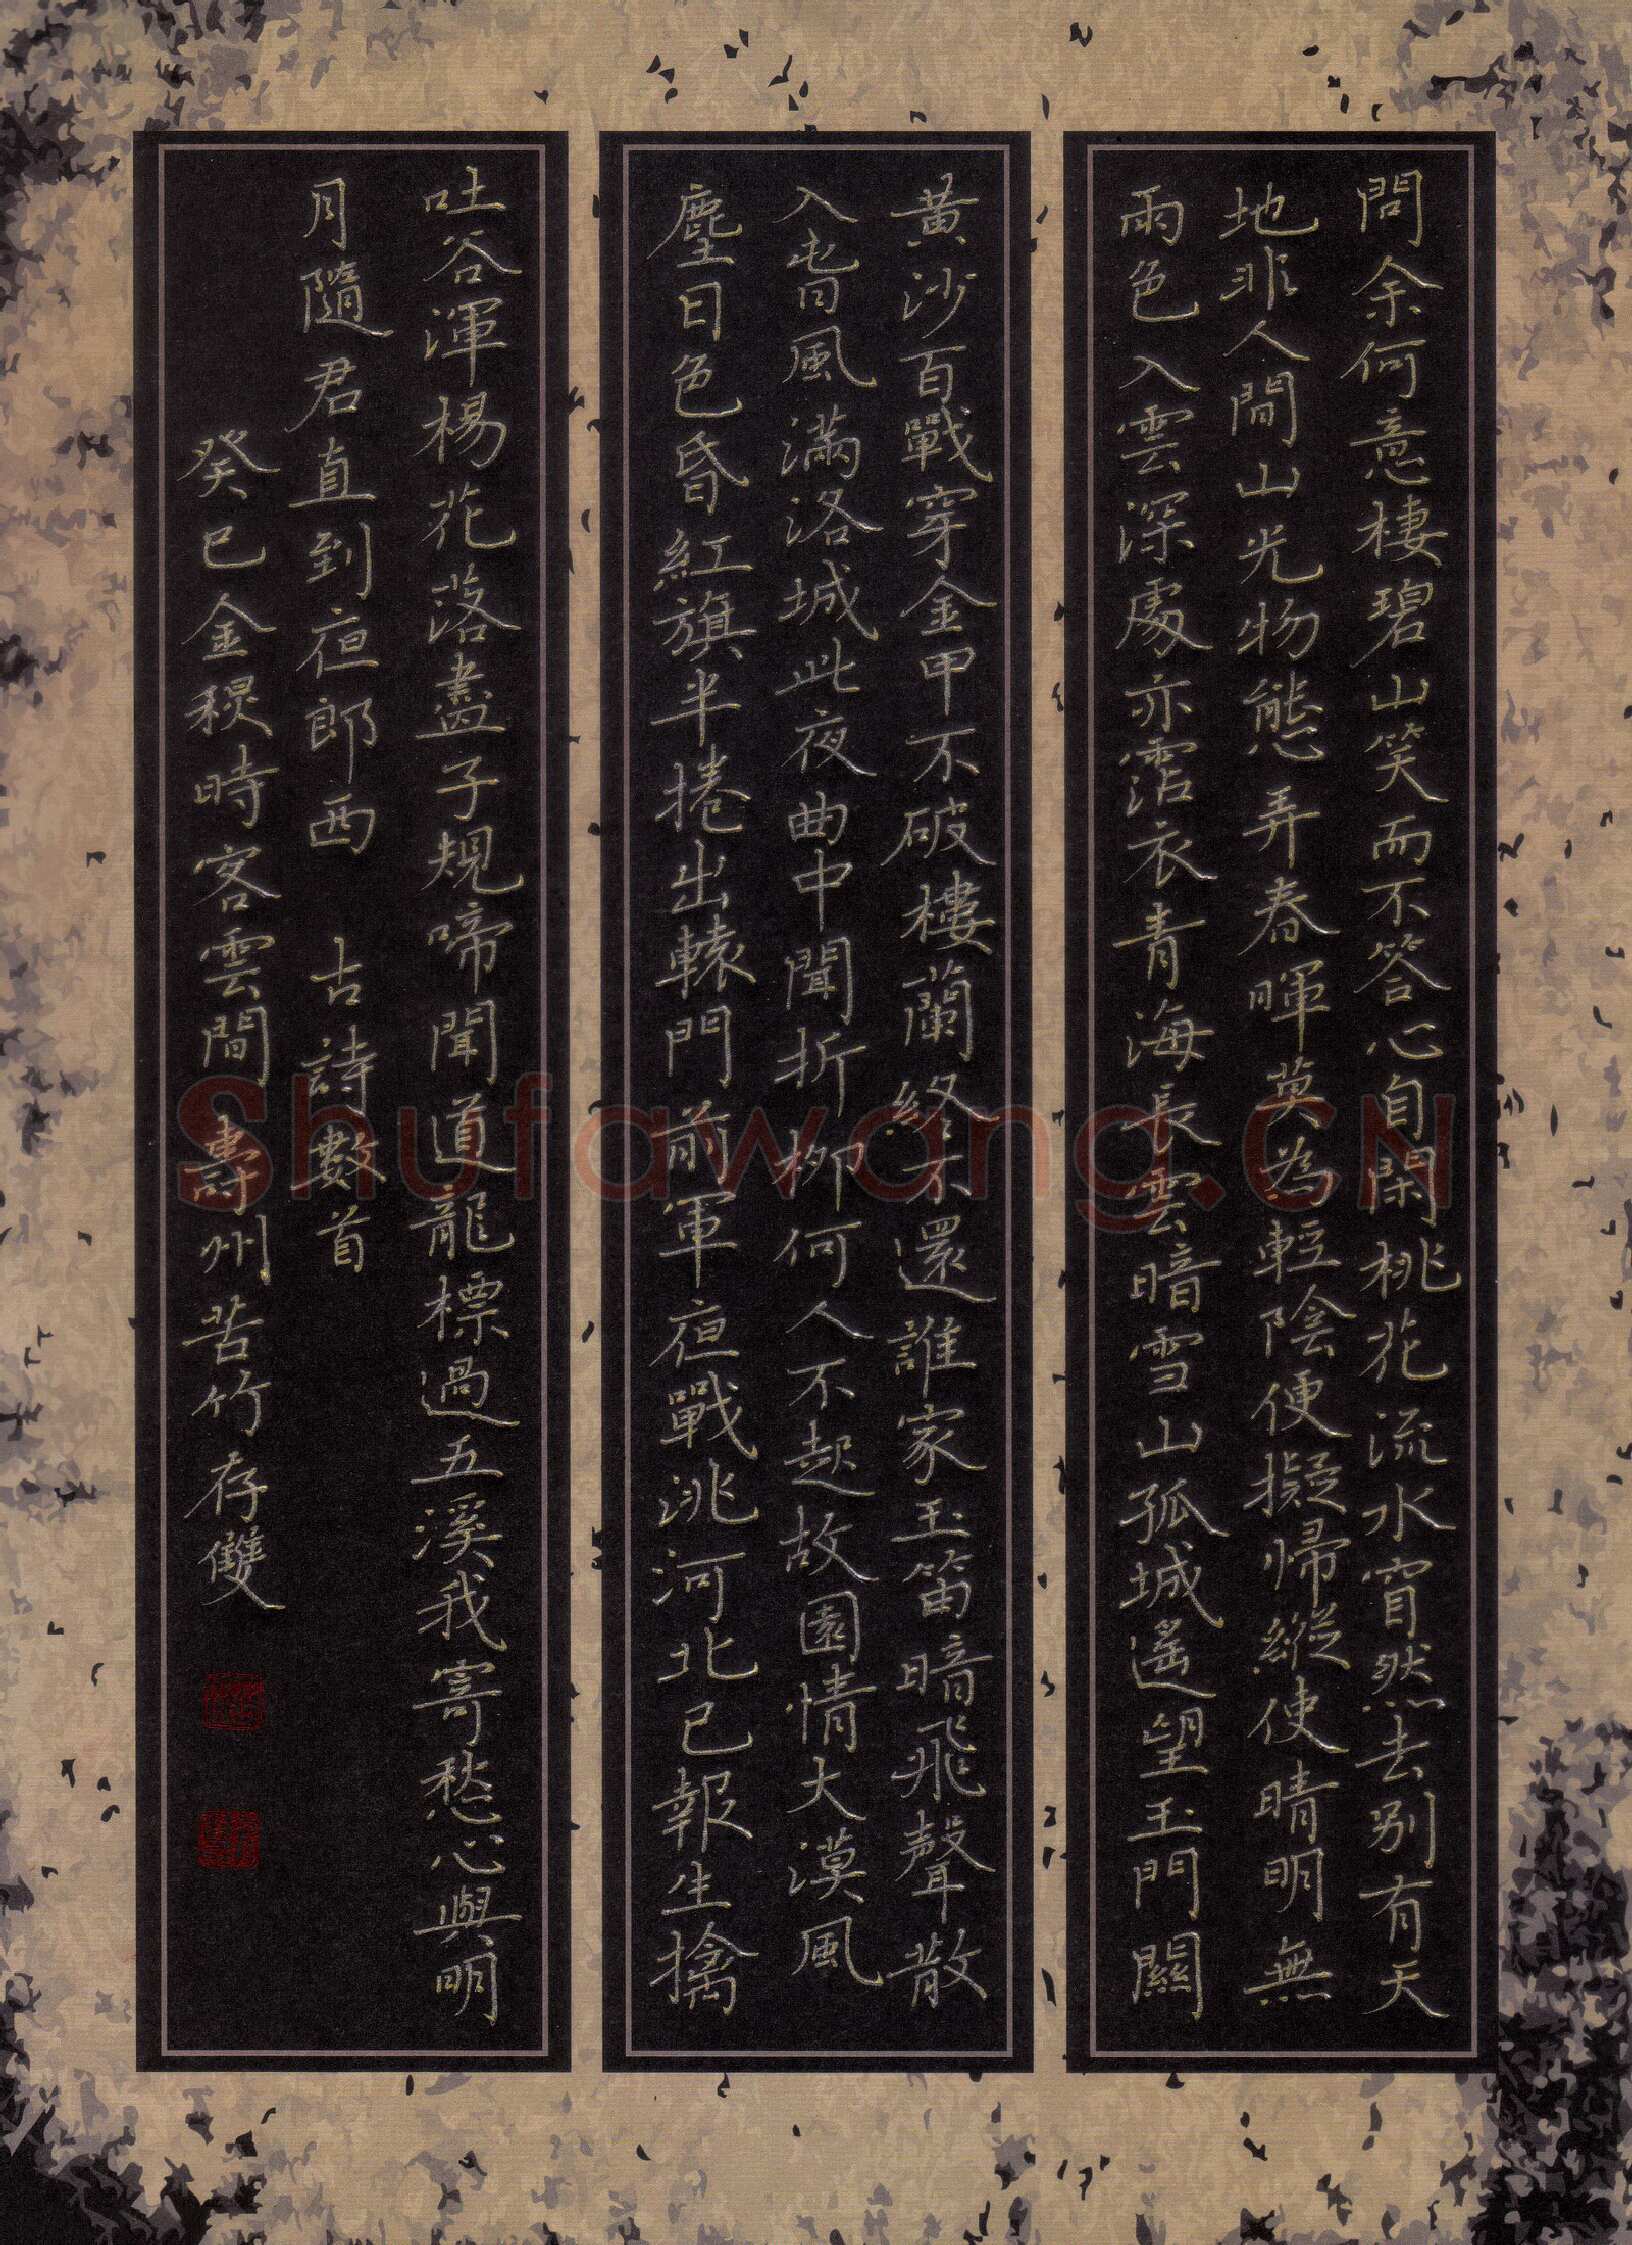 問余何意棲碧山笑而不答心自閑桃花流水窅然去别有天
地非人間山光物態弄春暉莫為輕陰便擬歸縱使晴明無
雨色入雲深處亦霑衣青海長雲暗雪山孤城遙望玉門關
黃沙百戰穿金甲不破樓蘭終不還誰家玉笛暗飛聲散
入春風滿洛城此夜曲中聞折柳何人不起故園情大漠風
塵日色昏紅旗半捲出轅門前軍夜戰洮河北已報生擒
吐谷渾楊花落盡子規啼聞道龍標過五溪我寄愁心與明
月隨君直到夜郎西 古詩數首
癸巳金穐時客雲間壽州苦竹存雙
Shufawang.CN